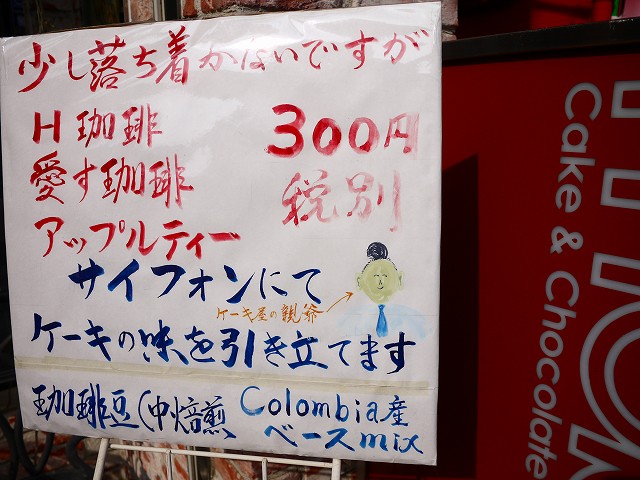 少し落ち着かないですが
H 珈琲
愛す珈琲
アップルティー
300円
税別
サイフォンにて
ケーキ屋の親爺
ケーキの味を引き立てます
珈琲豆(中焙煎 Colombia産
ベースmix
Cake & Chocolate